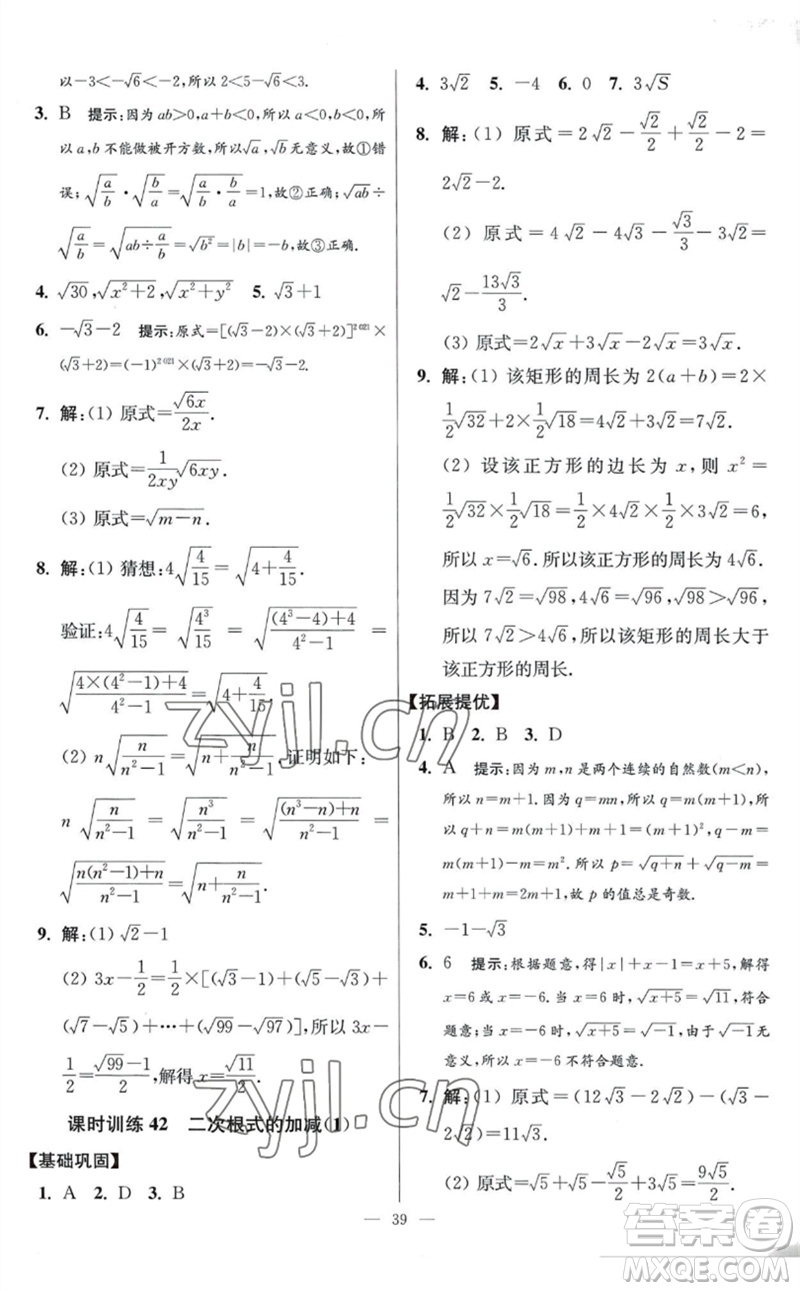 以－3＜－√6＜－2，所以2＜5－√6＜3.
3. B　提示：因为ab＞0，a＋b＜0，所以a＜0，b＜0，所
以a，b不能做被开方数，所以√a，√b无意义，故①错
误；√(a/b)·√(b/a)＝√(a/b · b/a)＝1，故②正确；√(ab)÷
√(a/b)＝√(ab÷a/b)＝√(b²)＝|b|＝－b，故③正确.
4. √30，√(x²＋2)，√(x²＋y²)　5. √3＋1
6. －√3－2　提示：原式＝[(√3－2)×(√3＋2)]²⁰²¹×
(√3＋2)＝(－1)²⁰²¹×(√3＋2)＝－√3－2.
7. 解：(1) 原式＝√(6x)/2x.
(2) 原式＝1/2xy √(6xy).
(3) 原式＝√(m－n).
8. 解：(1) 猜想：4√(4/15)＝√(4＋4/15).
验证：4√(4/15)＝√(4³/15)＝√(((4³－4)＋4)/(4²－1))＝
√((4×(4²－1)＋4)/(4²－1))＝√(4＋4/15).
(2) n√(n/(n²－1))＝√(n＋n/(n²－1))，证明如下：
n√(n/(n²－1))＝√(n³/(n²－1))＝√(((n³－n)＋n)/(n²－1))＝
√((n(n²－1)＋n)/(n²－1))＝√(n＋n/(n²－1)).
9. 解：(1) √2－1
(2) 3x－1/2＝1/2×[(√3－1)＋(√5－√3)＋
(√7－√5)＋…＋(√99－√97)]，所以3x－
1/2＝(√99－1)/2，解得x＝√11/2.
课时训练42　二次根式的加减(1)
【基础巩固】
1. A　2. D　3. B
4. 3√2　5. －4　6. 0　7. 3√S
8. 解：(1) 原式＝2√2－√2/2＋√2/2－2＝
2√2－2.
(2) 原式＝4√2－4√3－√3/3－3√2＝
√2－13√3/3.
(3) 原式＝2√x＋3√x－2√x＝3√x.
9. 解：(1) 该矩形的周长为2(a＋b)＝2×
1/2√32＋2×1/2√18＝4√2＋3√2＝7√2.
(2) 设该正方形的边长为x，则x²＝
1/2√32×1/2√18＝1/2×4√2×1/2×3√2＝6，
所以x＝√6.所以该正方形的周长为4√6.
因为7√2＝√98，4√6＝√96，√98＞√96，
所以7√2＞4√6.所以该矩形的周长大于
该正方形的周长.
【拓展提优】
1. B　2. B　3. D
4. A　提示：因为m，n是两个连续的自然数(m＜n)，
所以n＝m＋1.因为q＝mn，所以q＝m(m＋1)，所
以q＋n＝m(m＋1)＋m＋1＝(m＋1)²，q－m＝
m(m＋1)－m＝m².所以p＝√(q＋n)＋√(q－m)＝
m＋1＋m＝2m＋1，故p的值总是奇数.
5. －1－√3
6. 6　提示：根据题意，得|x|＋x－1＝x＋5，解得
x＝6或x＝－6.当x＝6时，√(x＋5)＝√11，符合
题意；当x＝－6时，√(x＋5)＝√－1，由于√－1无
意义，所以x＝－6不符合题意.
7. 解：(1) 原式＝(12√3－2√2)－(√3－
2√2)＝11√3.
(2) 原式＝√5＋5√5－√5－√5/2＝9√5/2.
— 39 —
zyjl.cn
zyjl.cn
答案卷
MXQE.COM